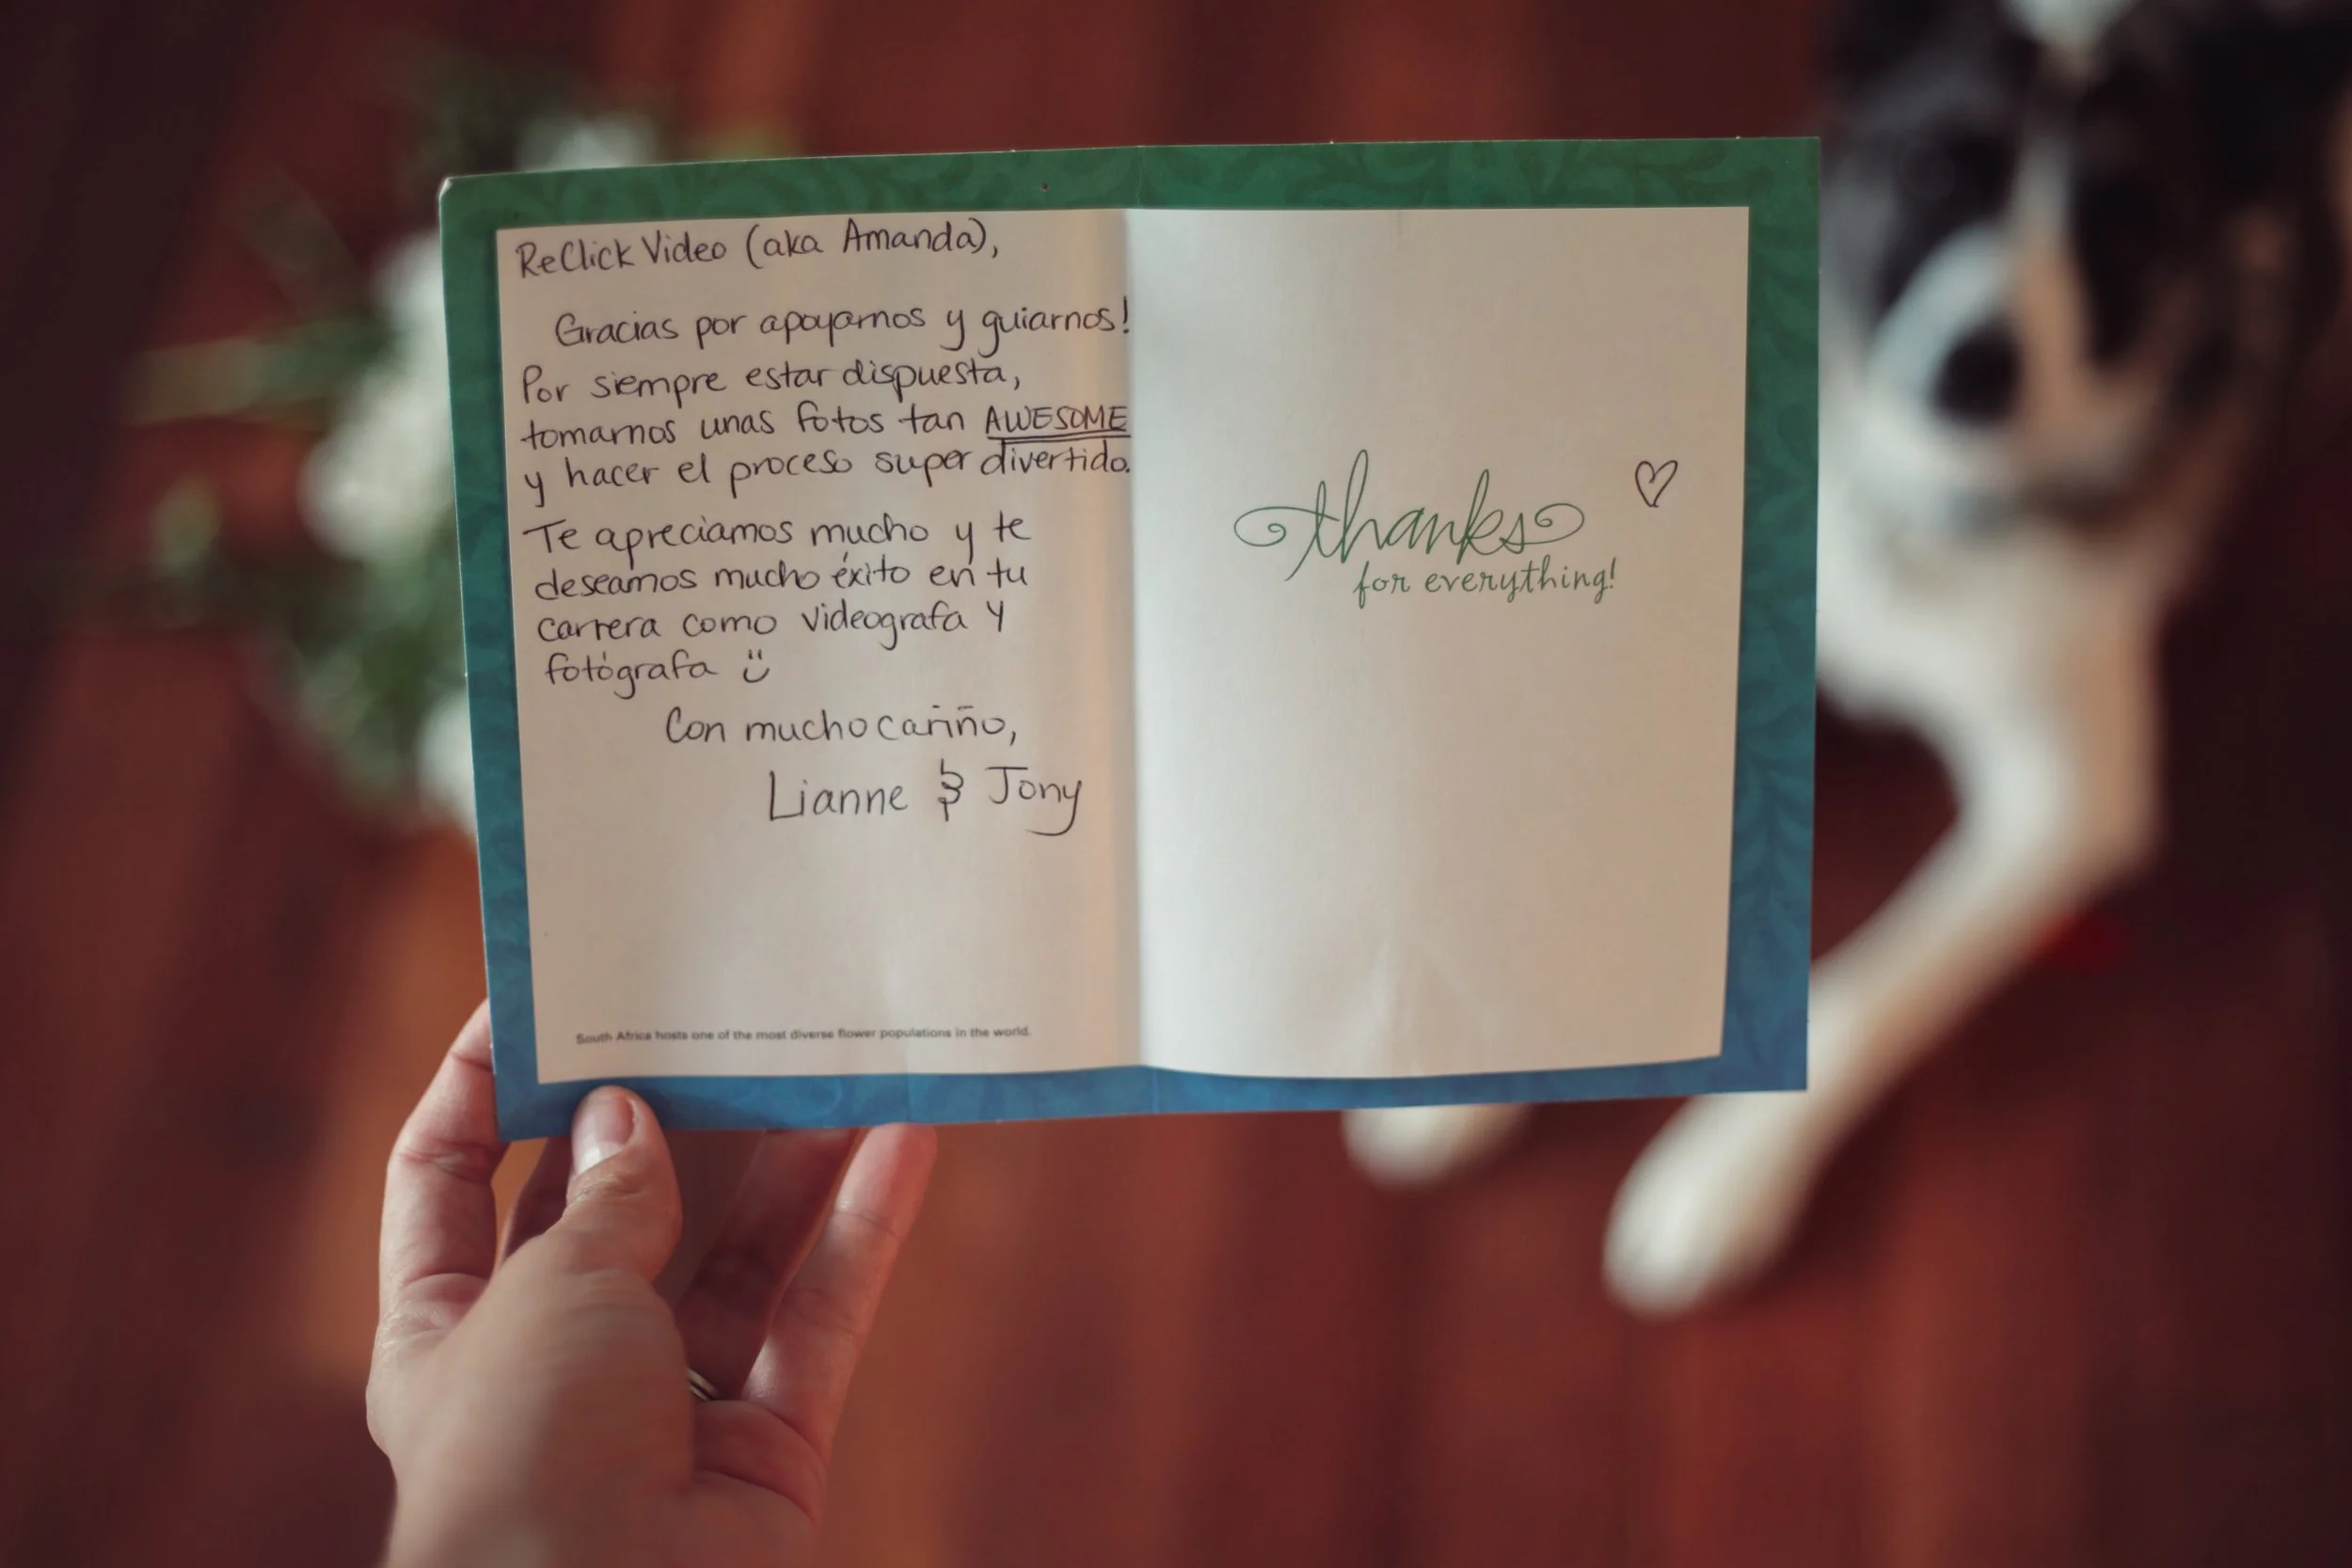 ReClick Video (aka Amanda),
Gracias por apoyarnos y guiarnos!
Por siempre estar dispuesta,
tomarnos unas fotos tan AWESOME
y hacer el proceso super divertido.
Te apreciamos mucho y te
deseamos mucho éxito en tu
carrera como videografa y
fotógrafa ü
Con mucho cariño,
Lianne & Jony
South Africa hosts one of the most diverse flower populations in the world.
thanks ♡
for everything!